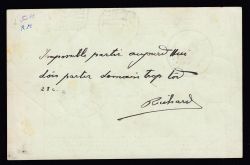 Impossible partir aujourd'hui
dois partir demain trop tôt
Richard